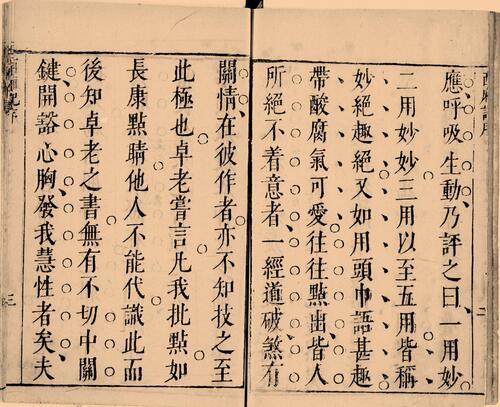 應呼吸生動乃評之曰一用妙
二用妙妙三用以至五用皆稱
妙絕趣絕又如用頭巾語甚趣
帶酸腐氣可愛往往點出皆人
所絕不着意者一經道破煞有
二
關情在彼作者亦不知技之至
此極也卓老嘗言凡我批點如
長康點睛他人不能代識此而
後知卓老之書無有不切中關
鍵開豁心胸發我慧性者矣夫
三